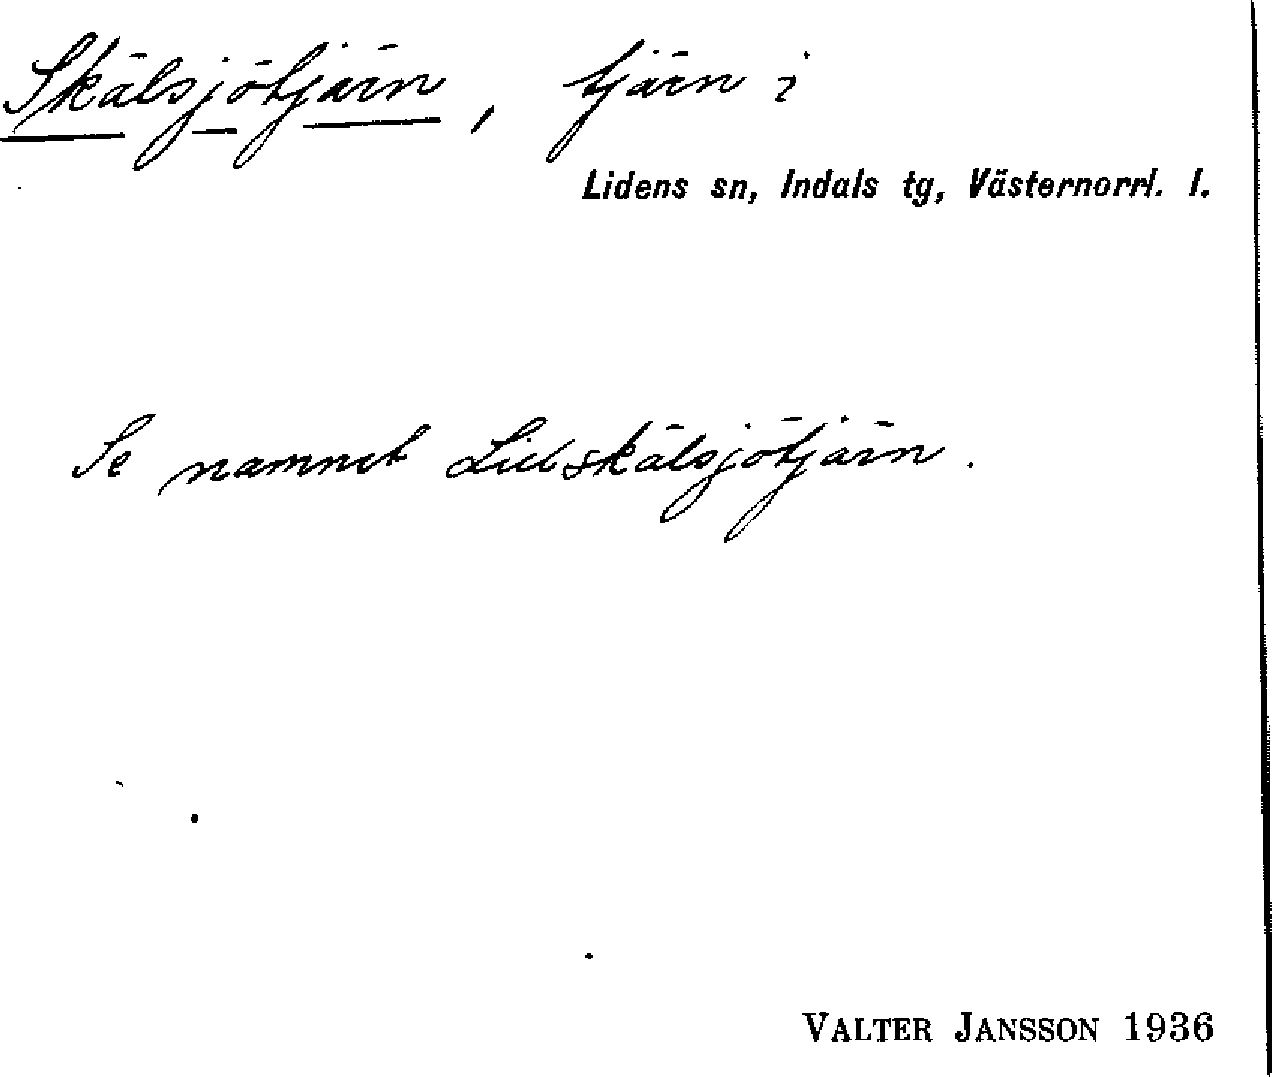 Skälsjötjärn, tjärn i
Lidens sn, Indals tg, Västernorrl. l.
Se namnet Lillskälsjötjärn.
VALTER JANSSON 1936